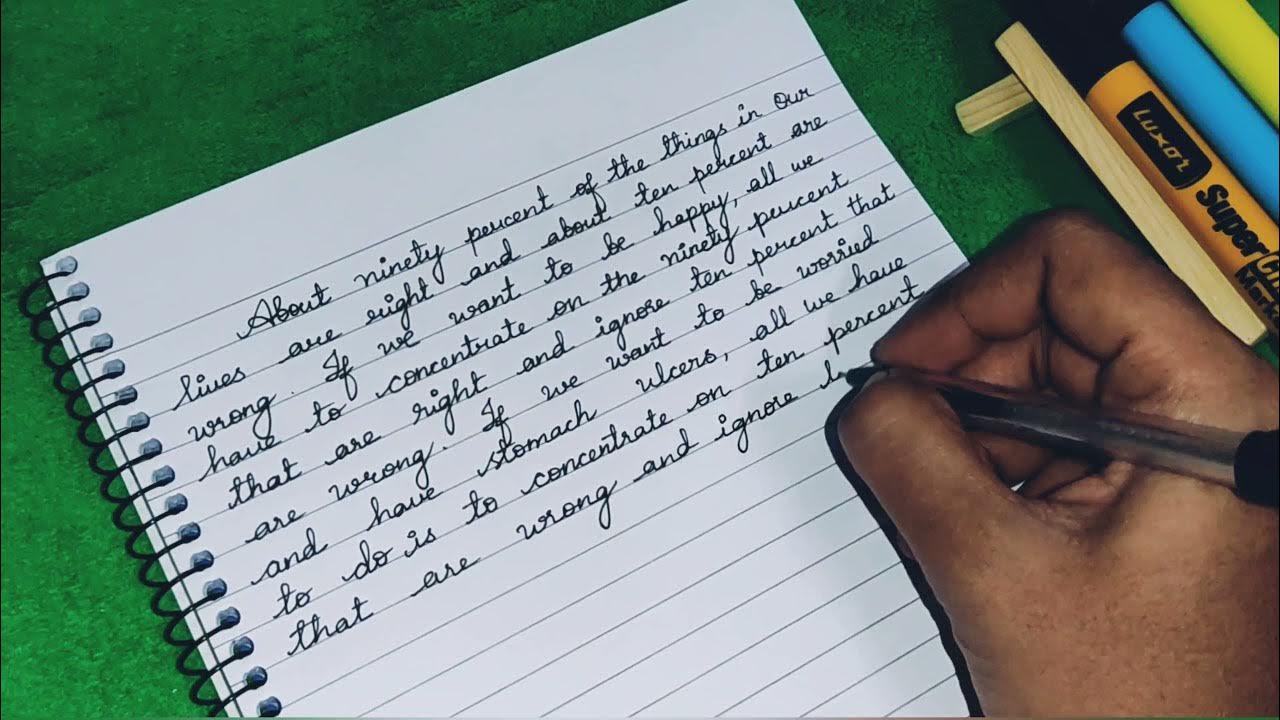 About ninety percent of the things in our
lives are right and about ten percent are
wrong. If we want to be happy, all we
have to concentrate on the ninety percent
that are right and ignore ten percent that
are wrong. If we want to be worried
and have stomach ulcers, all we have
to do is to concentrate on ten percent
that are wrong and ignore
Luxor
Super